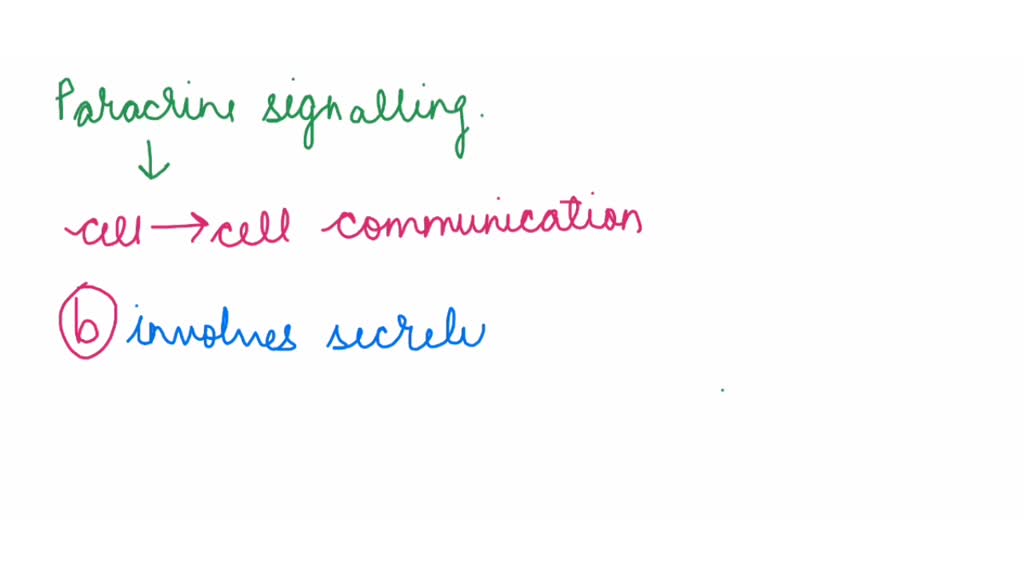 Paracrine signalling.
↓
cell → cell communication
b involves secrele